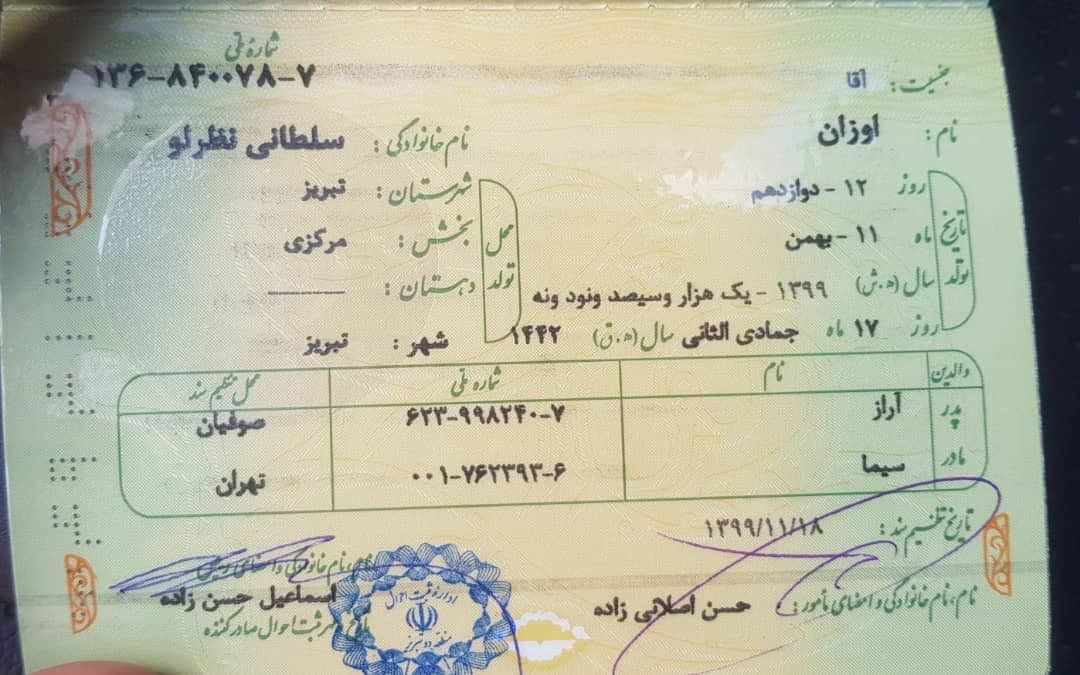 شماره ملی
۱۳۶-۸۴۰۰۷۸-۷
جنسیت: آقا
نام: اوزان
نام خانوادگی: سلطانی نظرلو
تاریخ تولد
روز ۱۲ - دوازدهم
ماه ۱۱ - بهمن
سال (ه.ش) ۱۳۹۹ - یک هزار وسیصد ونود ونه
روز ۱۷ ماه جمادی الثانی سال (ه.ق) ۱۴۴۲
محل تولد
شهرستان: تبریز
بخش: مرکزی
دهستان: ـــــــــ
شهر: تبریز
والدین نام شماره ملی محل تنظیم سند
پدر آراز ۶۲۳-۹۹۸۲۴۰-۷ صوفیان
مادر سیما ۰۰۱-۷۶۲۳۹۳-۶ تهران
تاریخ تنظیم سند: ۱۳۹۹/۱۱/۱۸
نام، نام خانوادگی و امضای مأمور: حسن اصلانی زاده
نام، نام خانوادگی و امضای رئیس
اسماعیل حسن زاده
ثبت احوال صادرکننده
اداره ثبت احوال
منطقه دو تبریز